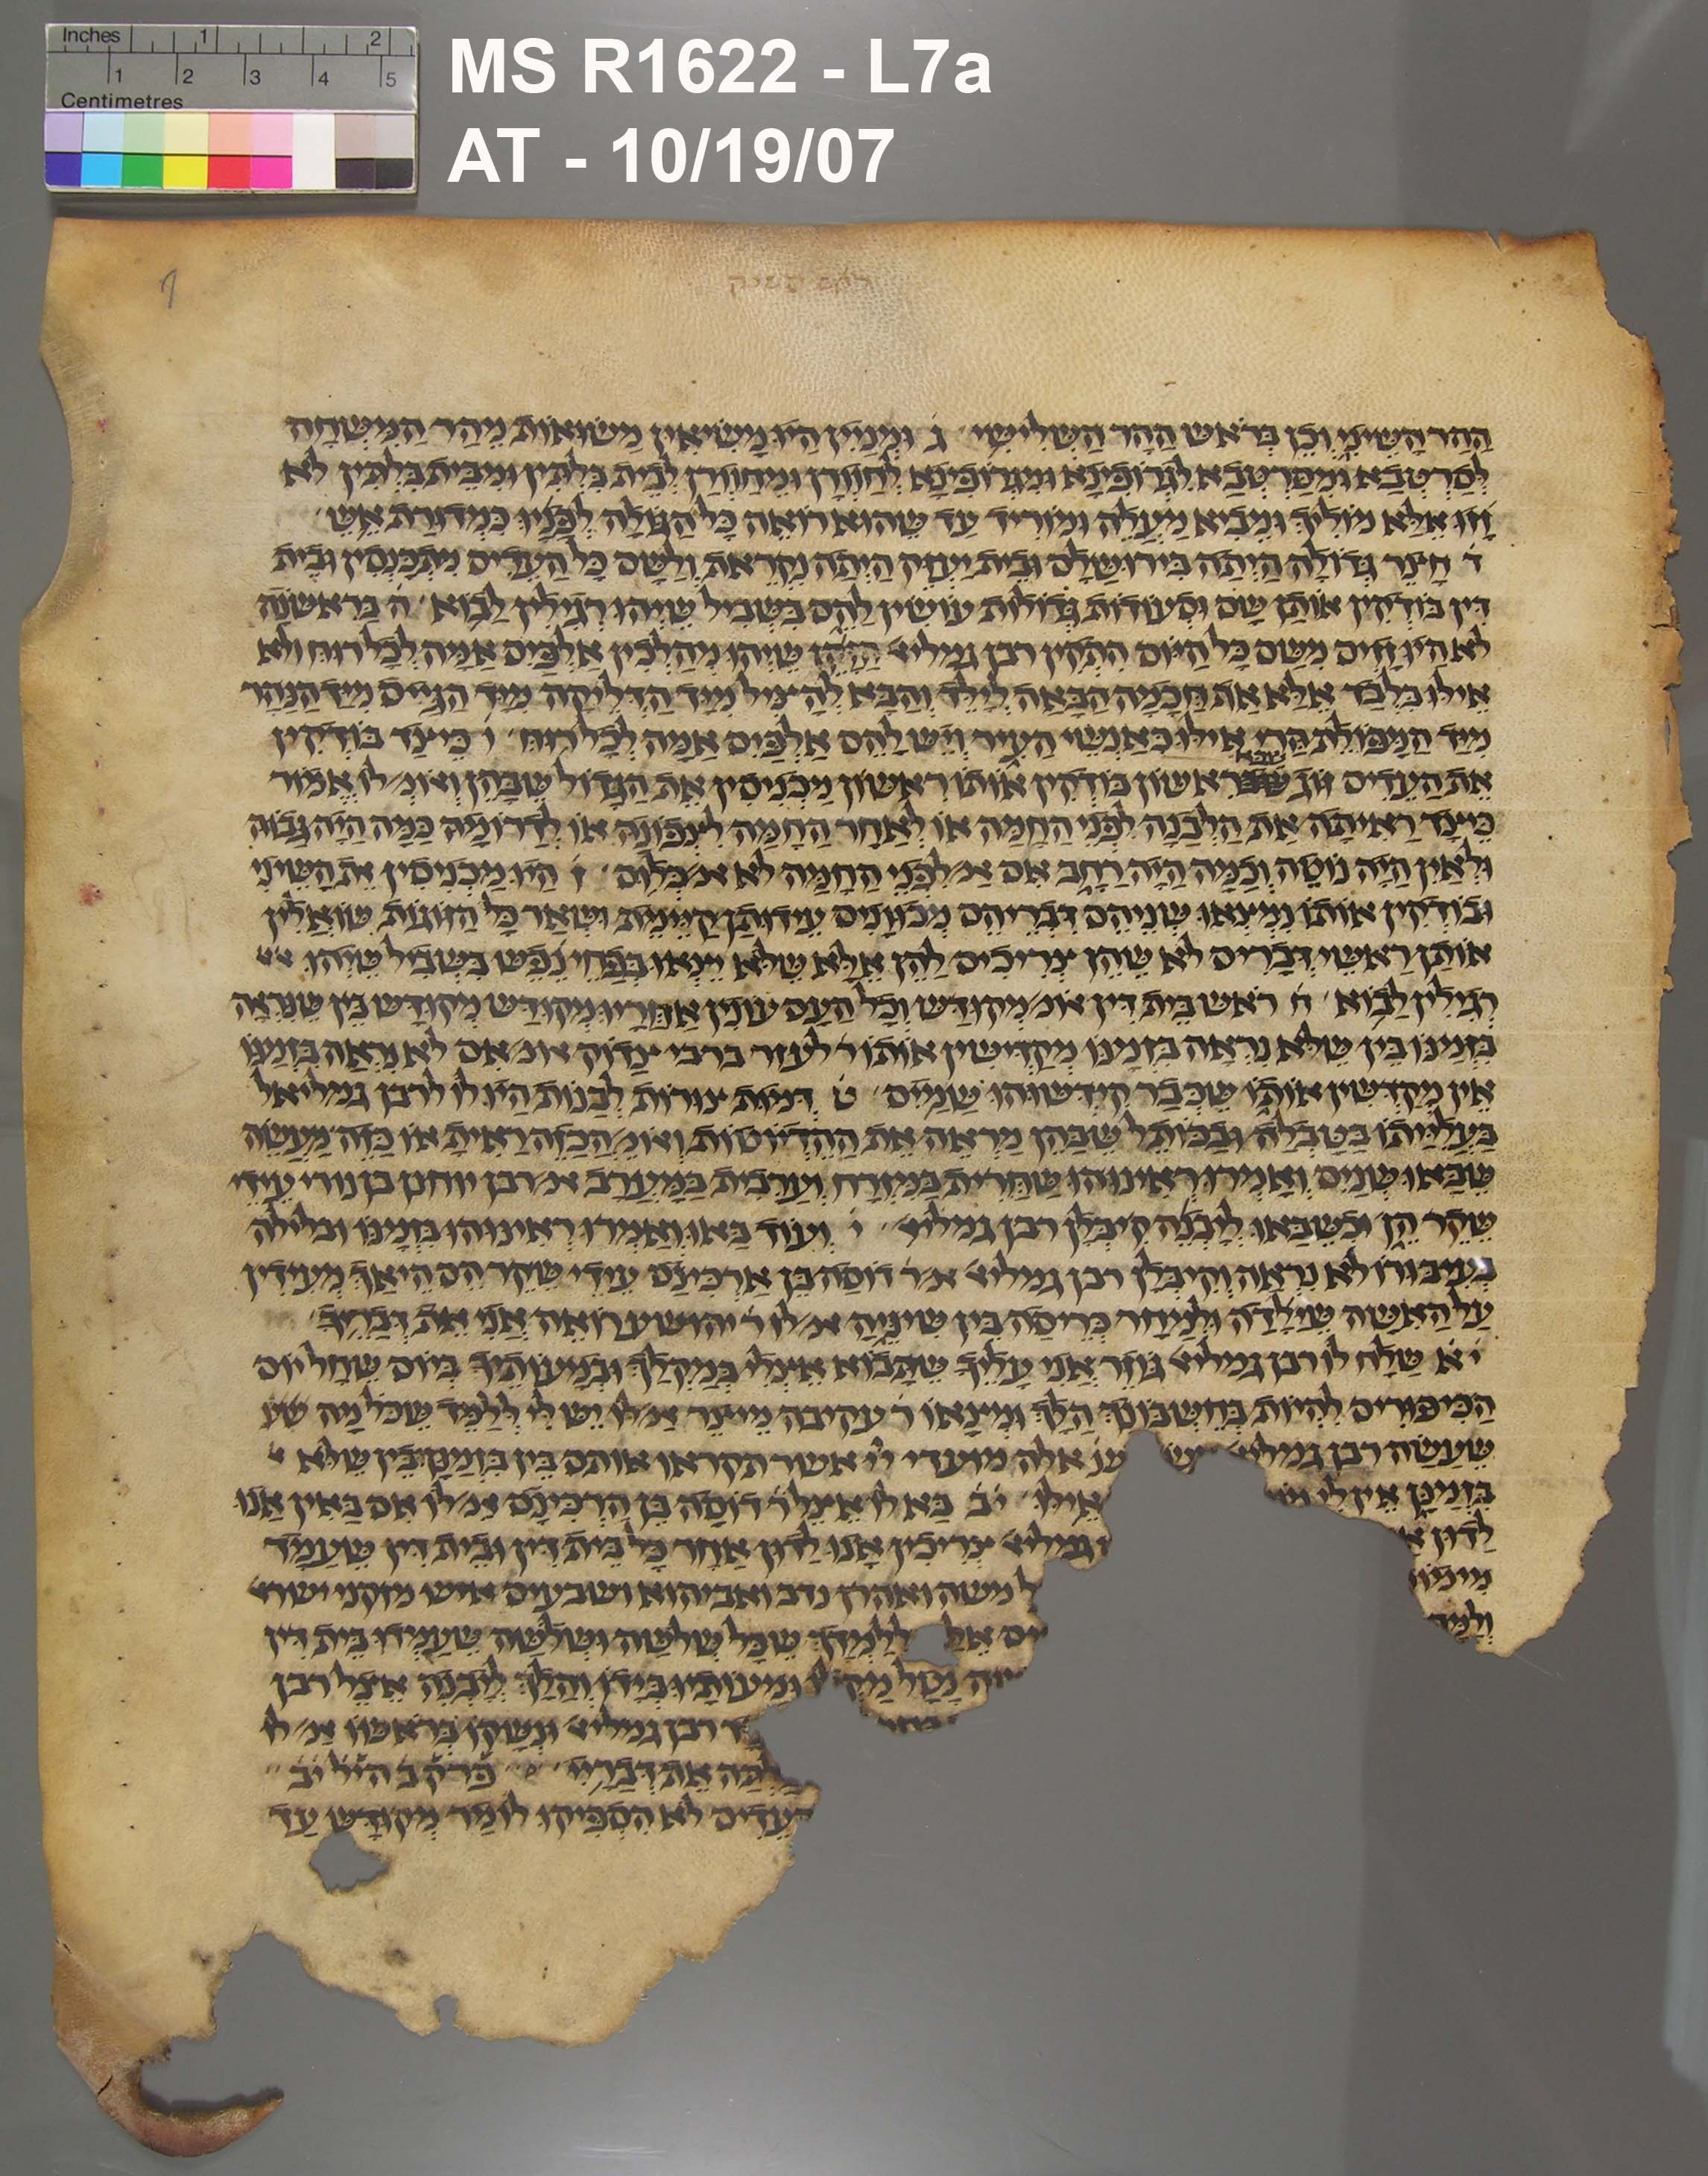 Inches 1 2
1 2 3 4 5
Centimetres
MS R1622 - L7a
AT - 10/19/07
ההר השיני וכן בראש ההר השלישי ג ומניין היו משיאין משואות מהר המשחה
לסרטבא ומסרטבא לגרובינא ומגרובינא לחוורן ומחוורן לבית בלתין ומבית בלתין לא
זזו אלא מוליך ומביא מעלה ומוריד עד שהוא רואה כל הגולה לפניו כמדורת אש
ד חצר גדולה היתה בירושלם ובית יעזק היתה נקראת ולשם כל העדים מתכנסין ובית
דין בודקין אותן שם וסעודות גדולות עושין להם בשביל שיהו רגילין לבוא ה בראשונה
לא היו זזים משם כל היום התקין רבן גמליא הזקן שיהו מהלכין אלפים אמה לכל רוח ולא
אילו בלבד אלא את חכמה הבאה לילד והבא להציל מיד הדליקה מיד הגייס מיד הנהר
מיד המפולת הרי אילו כאנשי העיר ויש להם אלפים אמה לכל רוח ו כיצד בודקין
את העדים זוג שבא ראשון בודקין אותו ראשון מכניסין את הגדול שבהן ואומ׳ לו אמור
כיצד ראיתה את הלבנה לפני החמה או לאחר החמה לצפונה או לדרומה כמה היה גבוה
ולאין היה נוטה וכמה היה רחב אם א׳ לפני החמה לא א׳ כלום ז היו מכניסין את השיני
ובודקין אותו נמצאו שניהם דבריהם מכוונים עידותן קיימת ושאר כל הזוגות שואלין
אותן ראשי דברים לא שהן צריכים להן אלא שלא יצאו בפחי נפש בשביל שיהו
רגילין לבוא ח ראש בית דין אומ׳ מקודש וכל העם עונין אחריו מקודש מקודש בין שנראה
בזמנו בין שלא נראה בזמנו מקדישין אותו ר׳ לעזר ברבי צדוק אומ׳ אם לא נראה בזמנו
אין מקדשין אותו שכבר קידשוהו שמים ט דמות צורות לבנות היו לו לרבן גמליאל
בעלייתו בטבלה ובכותל שבהן מראה את ההדיוטות ואומ׳ הכזה ראיתה או כזה מעשה
שבאו שנים ואמרו ראינוהו שחרית במזרח וערבית במערב א׳ רבן יוחנן בן נורי עידי
שקר הן וכשבאו ליבנה קיבלן רבן גמליא י ועוד באו ואמרו ראינוהו בזמנו ובלילה
בעיבורו לא נראה וקיבלן רבן גמליא א׳ ר׳ דוסה בן ארכינס עידי שקר הם היאך מעידין
על האשה שילדה ולמחר כריסה בין שיניה א׳ לו ר׳ יהושע רואה אני את דבריך
יא שלח לו רבן גמליא גוזר אני עליך שתבוא אצלי במקלך ובמעותיך ביום שחל יום
הכיפורים להיות בחשבונך הלך ומצאו ר׳ עקיבה מיצר א׳ לו יש לי ללמד שכל מה
שעשה רבן גמליא אלה מועדי יי אשר תקראו אותם בין בזמנן בין שלא
בזמנן אין לי אילו יב בא לו אצל ר׳ דוסה בן הרכינס א׳ לו אם באין אנו
לדון גמליא צריכין אנו לדון אחר כל בית דין ובית דין שעמד
מימות משה ואהרן נדב ואביהוא ושבעים איש מזקני ישרא
ללמדך שכל שלשה ושלשה שעמדו בית דין
נטל ומעותיו בידו והלך ליבנה אצל רבן
רבן גמליא ונשקו בראשו א׳ לו
את דבריי פרק ב הל׳ יב
עדים לא הספיקו לומר מקודש עד